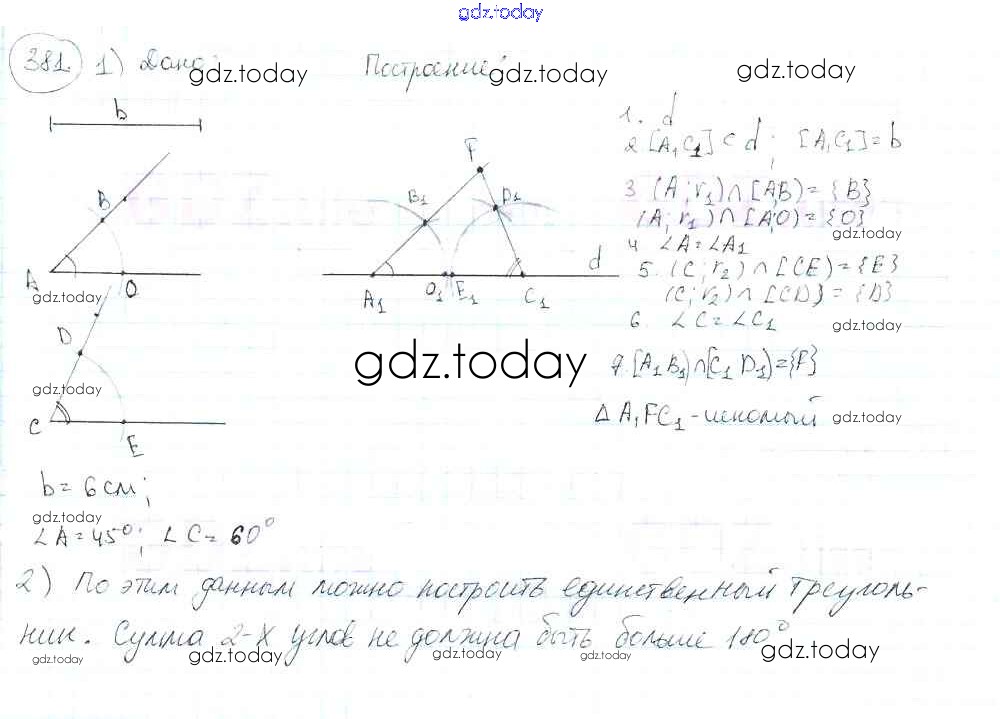 gdz.today
381. 1) Дано: Построение:
gdz.today gdz.today gdz.today
b
B
A O
gdz.today
D
gdz.today
C E
F
B₁ D₁
d
A₁ O₁ E₁ C₁
gdz.today
1. d
2. [A₁C₁] ⊂ d ; [A₁C₁] = b
3. (A; r₁) ∩ [AB) = {B}
(A; r₁) ∩ [AO) = {O}
gdz.today
4. ∠A = ∠A₁
5. (C; r₂) ∩ [CE) = {E}
(C; r₂) ∩ [CD) = {D}
6. ∠C = ∠C₁
gdz.today
7. [A₁B₁) ∩ [C₁D₁) = {F}
△ A₁FC₁ - искомый
gdz.today
b = 6 см;
gdz.today
∠A = 45°; ∠C = 60°
2) По этим данным можно построить единственный треуголь-
ник. Сумма 2-х углов не должна быть больше 180°
gdz.today gdz.today gdz.today gdz.today gdz.today